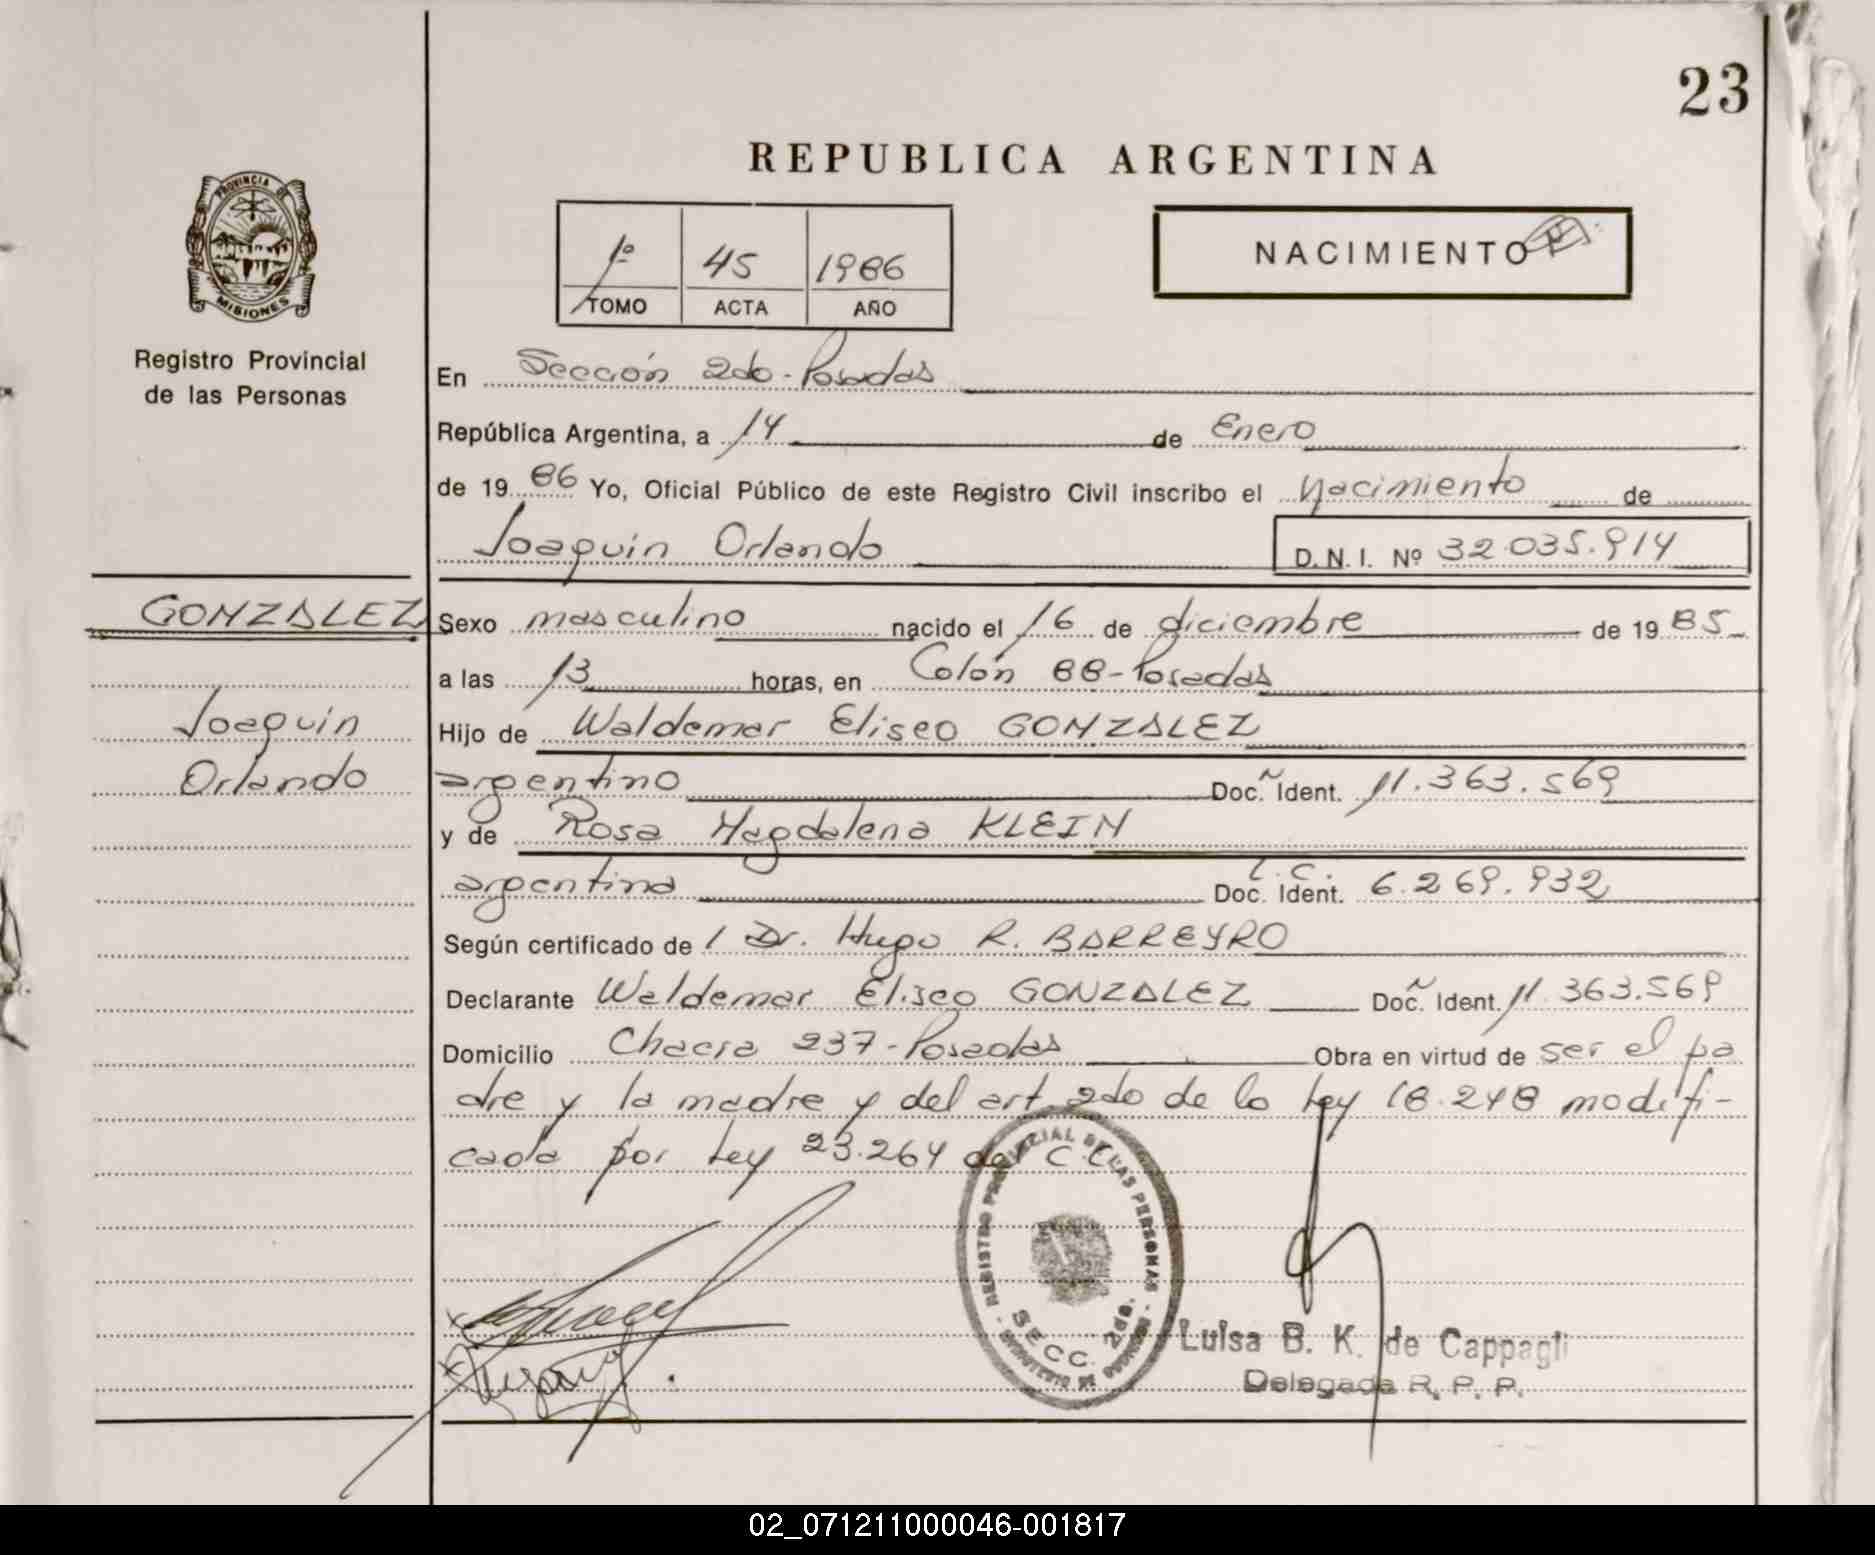 23
REPUBLICA ARGENTINA
PROVINCIA DE
MISIONES
Registro Provincial
de las Personas
1º 45 1986
TOMO ACTA AÑO
NACIMIENTO
En Sección 2do - Posadas
República Argentina, a 14 de Enero
de 19 86 Yo, Oficial Público de este Registro Civil inscribo el Nacimiento de
Joaquin Orlando D.N.I. Nº 32.035.914
GONZALEZ
Joaquin
Orlando
Sexo masculino nacido el 16 de diciembre de 19 85
a las 13 horas, en Colón 88 - Posadas
Hijo de Waldemar Eliseo GONZALEZ
argentino Doc. Ident. 11.363.569
y de Rosa Magdalena KLEIN
argentina L.C. Doc. Ident. 6.269.932
Según certificado de / Dr. Hugo R. BARREYRO
Declarante Waldemar Eliseo GONZALEZ Doc. Ident. 11.363.569
Domicilio Chacra 237 - Posadas Obra en virtud de ser el pa
dre y la madre y del art. 2do de la Ley 18.248 modifi-
cada por Ley 23.264 del C.C.
REGISTRO PROVINCIAL DE LAS PERSONAS
SECC. 2da.
Luisa B. K. de Cappagli
Delegada R. P. P.
02_071211000046-001817